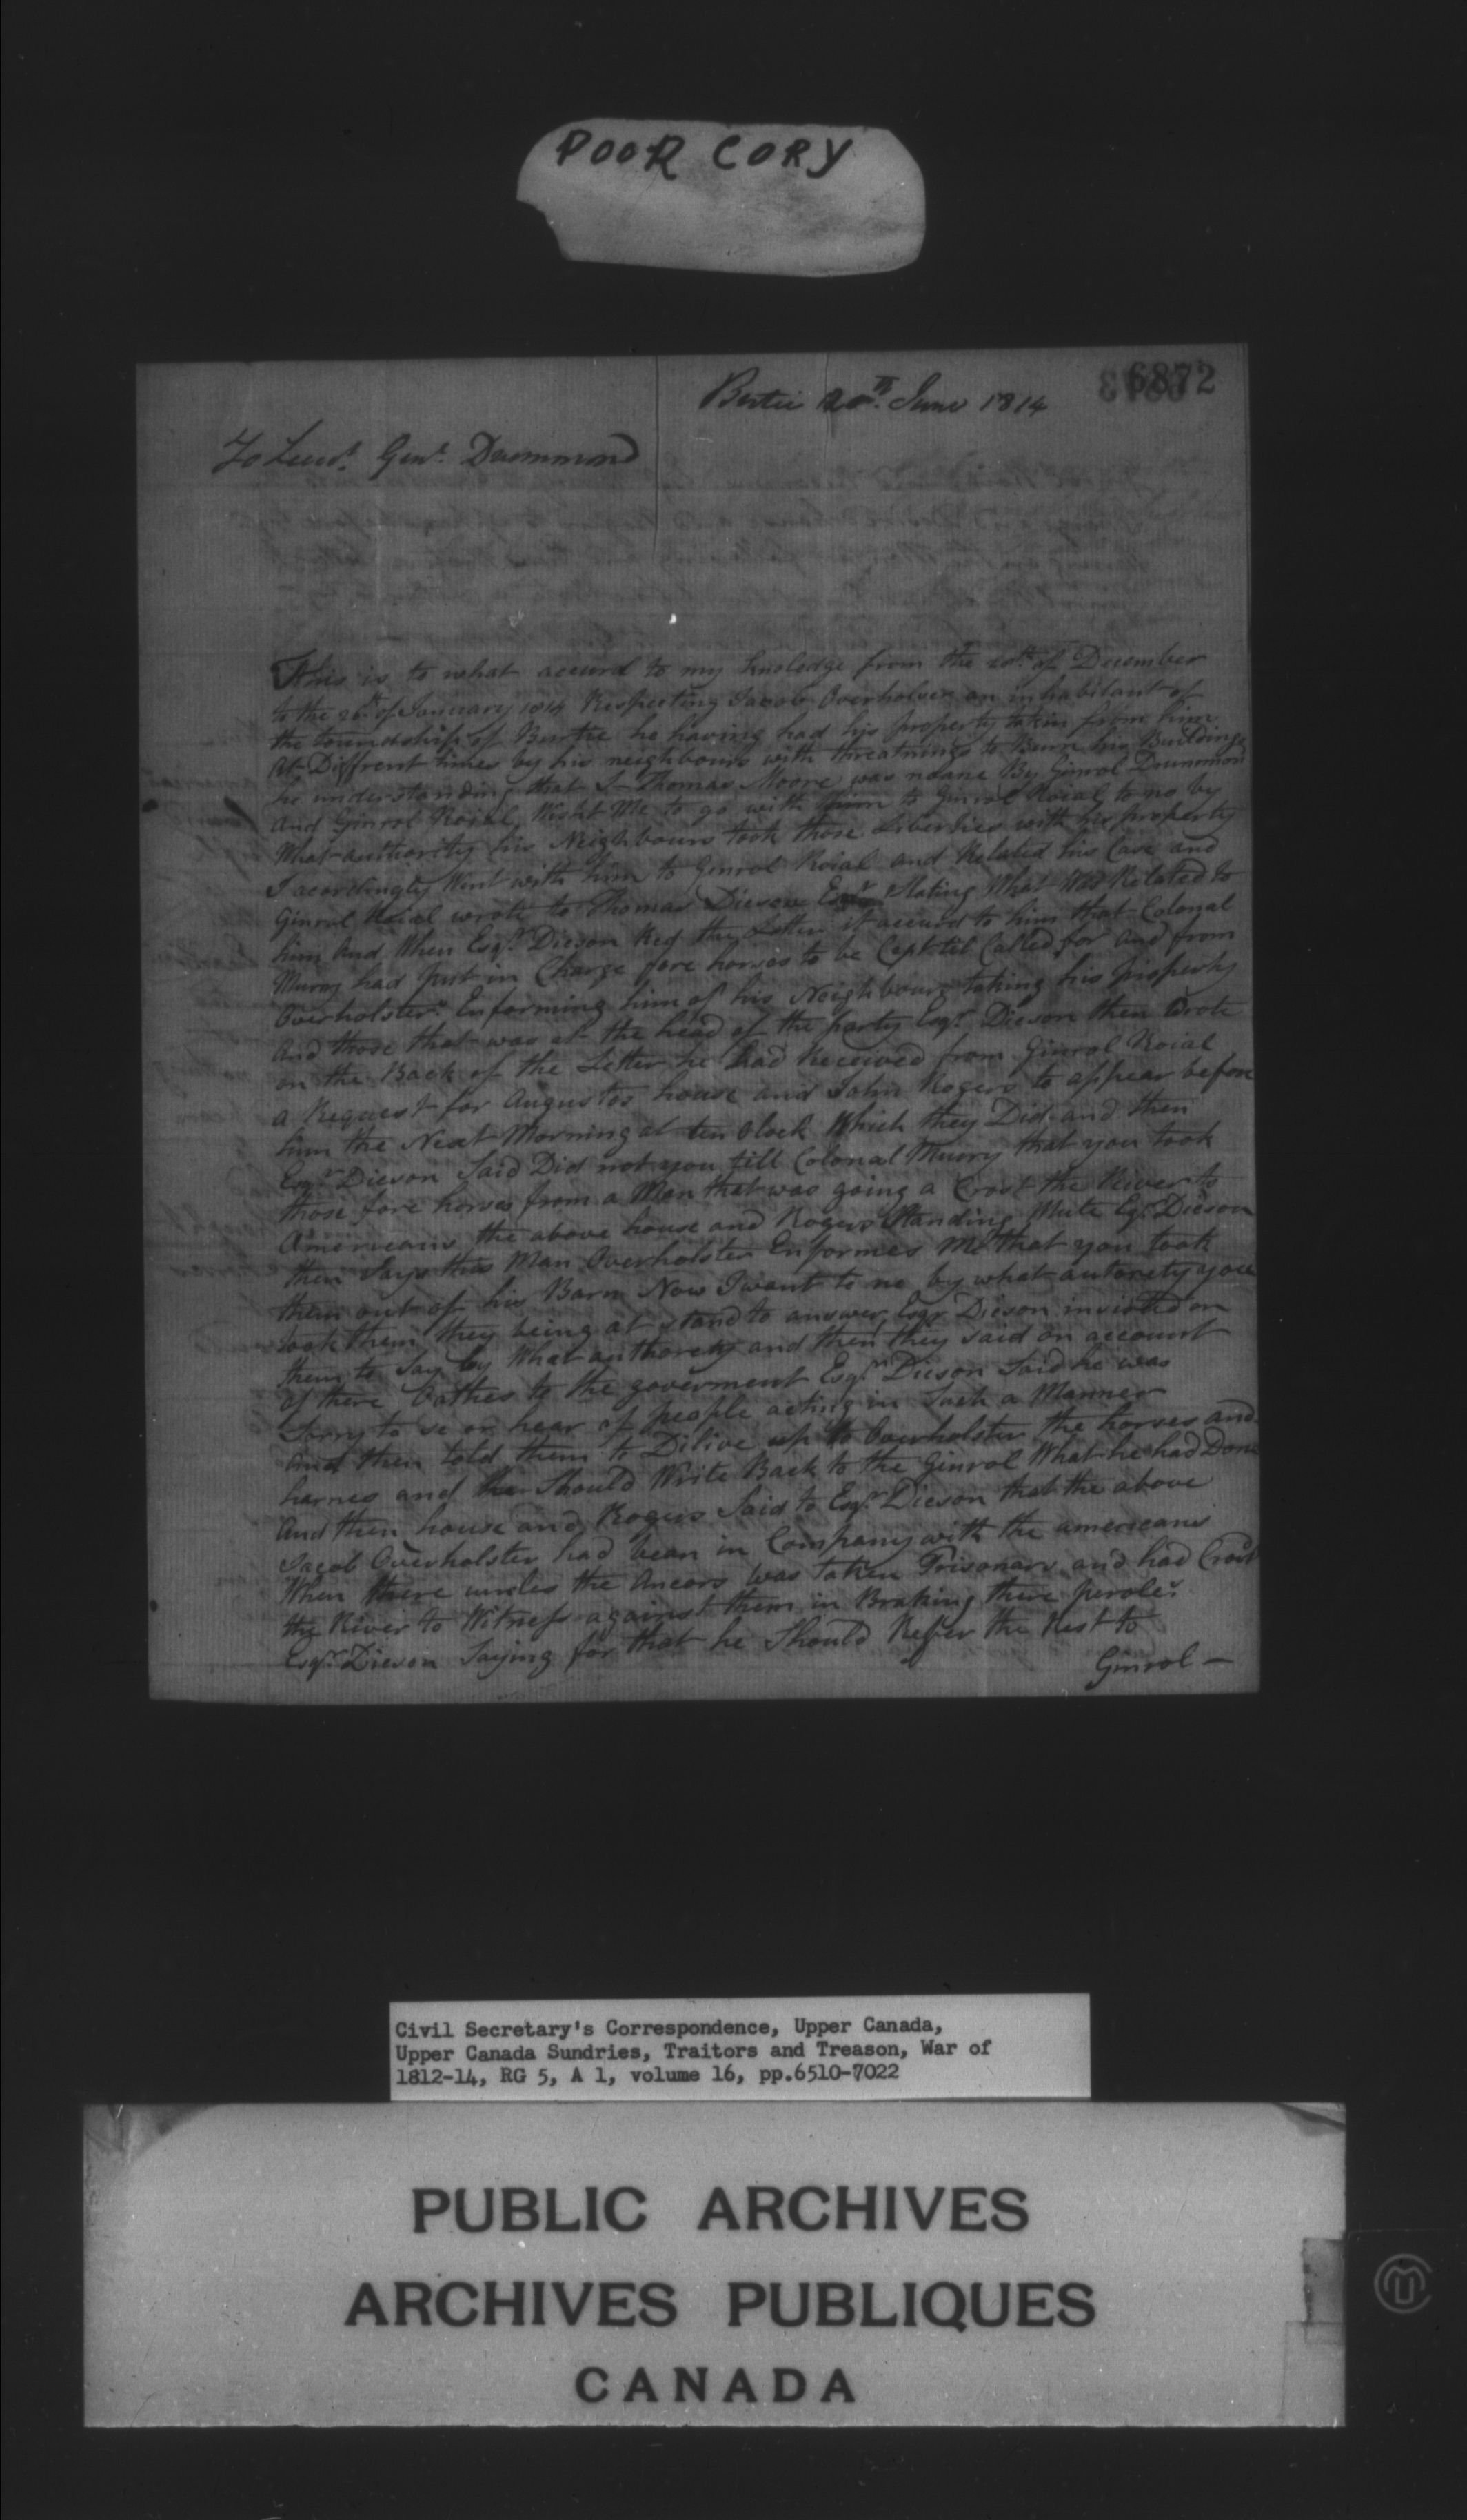 POOR COPY
6872
Bertie 20th. June 1814
To Lieut. Genl. Drummond
This is to what accurd to my knoledge from the 20th of December
to the 26th of January 1814 Respecting Jacob Overholser an inhabitant of
the towndship of Burtie he having had his property taken from him
at Diffrent times by his neighbours with threatnings to Burn his Buildings
he understanding that I Thomas Moore was noane By Ginrol Drummon
and Ginrol Roial Wisht Me to go with him to Ginrol Roial to no by
What authority his Neighbours took those Liberties with his property
I acordingly Went with him to Ginrol Roial and Related his Case and
Ginrol Roial wrote to Thomas Dicson Esqr Stating What Was Related to
him And When Esqr. Dicson Red the Letter it accurd to him that Colonal
Murry had put in Charge fore horses to be Cept til Called for and from
Overholster Enforming him of his Neighbours taking his property
And those that was at the head of the party Esqr. Dicson then Wrote
on the Back of the Letter he had Received from Ginrol Roial
a Request for Augustos house and John Rogers to appear before
him the Next Morning at ten Clock Which they Did and then
Esqr. Dicson Said Did not you till Colonal Murry that you took
those fore horses from a Man that was going a Crost the River to
Americans the above house and Rogers Standing Mute Eqr. Dicson
then Says this Man Overholster Enformes Me that you took
them out of his Barn Now I want to no by what autorety you
took them they being at stand to answer, Esqr Dicson invisted on
them to Say by What authorety and then they said on account
of there Oathes to the goverment Esqr. Dicson Said he was
Sorry to se or hear of people acting in Such a Manner
And then told them to Dilive up to Overholster the horses and
harnes and he Should Write Back to the Ginrol What he had Done
And then house and Rogers Said to Esqr. Dicson that the above
Jacob Overholster had bean in Company with the americans
When there unkles the Ancors was taken Prisonars and had Crost
the River to Witness against them in Braking there peroles
Esqr. Dicson Saying for that he Should Refer the Rest to
Ginrol —
Civil Secretary's Correspondence, Upper Canada,
Upper Canada Sundries, Traitors and Treason, War of
1812-14, RG 5, A 1, volume 16, pp.6510-7022
PUBLIC ARCHIVES
ARCHIVES PUBLIQUES
CANADA